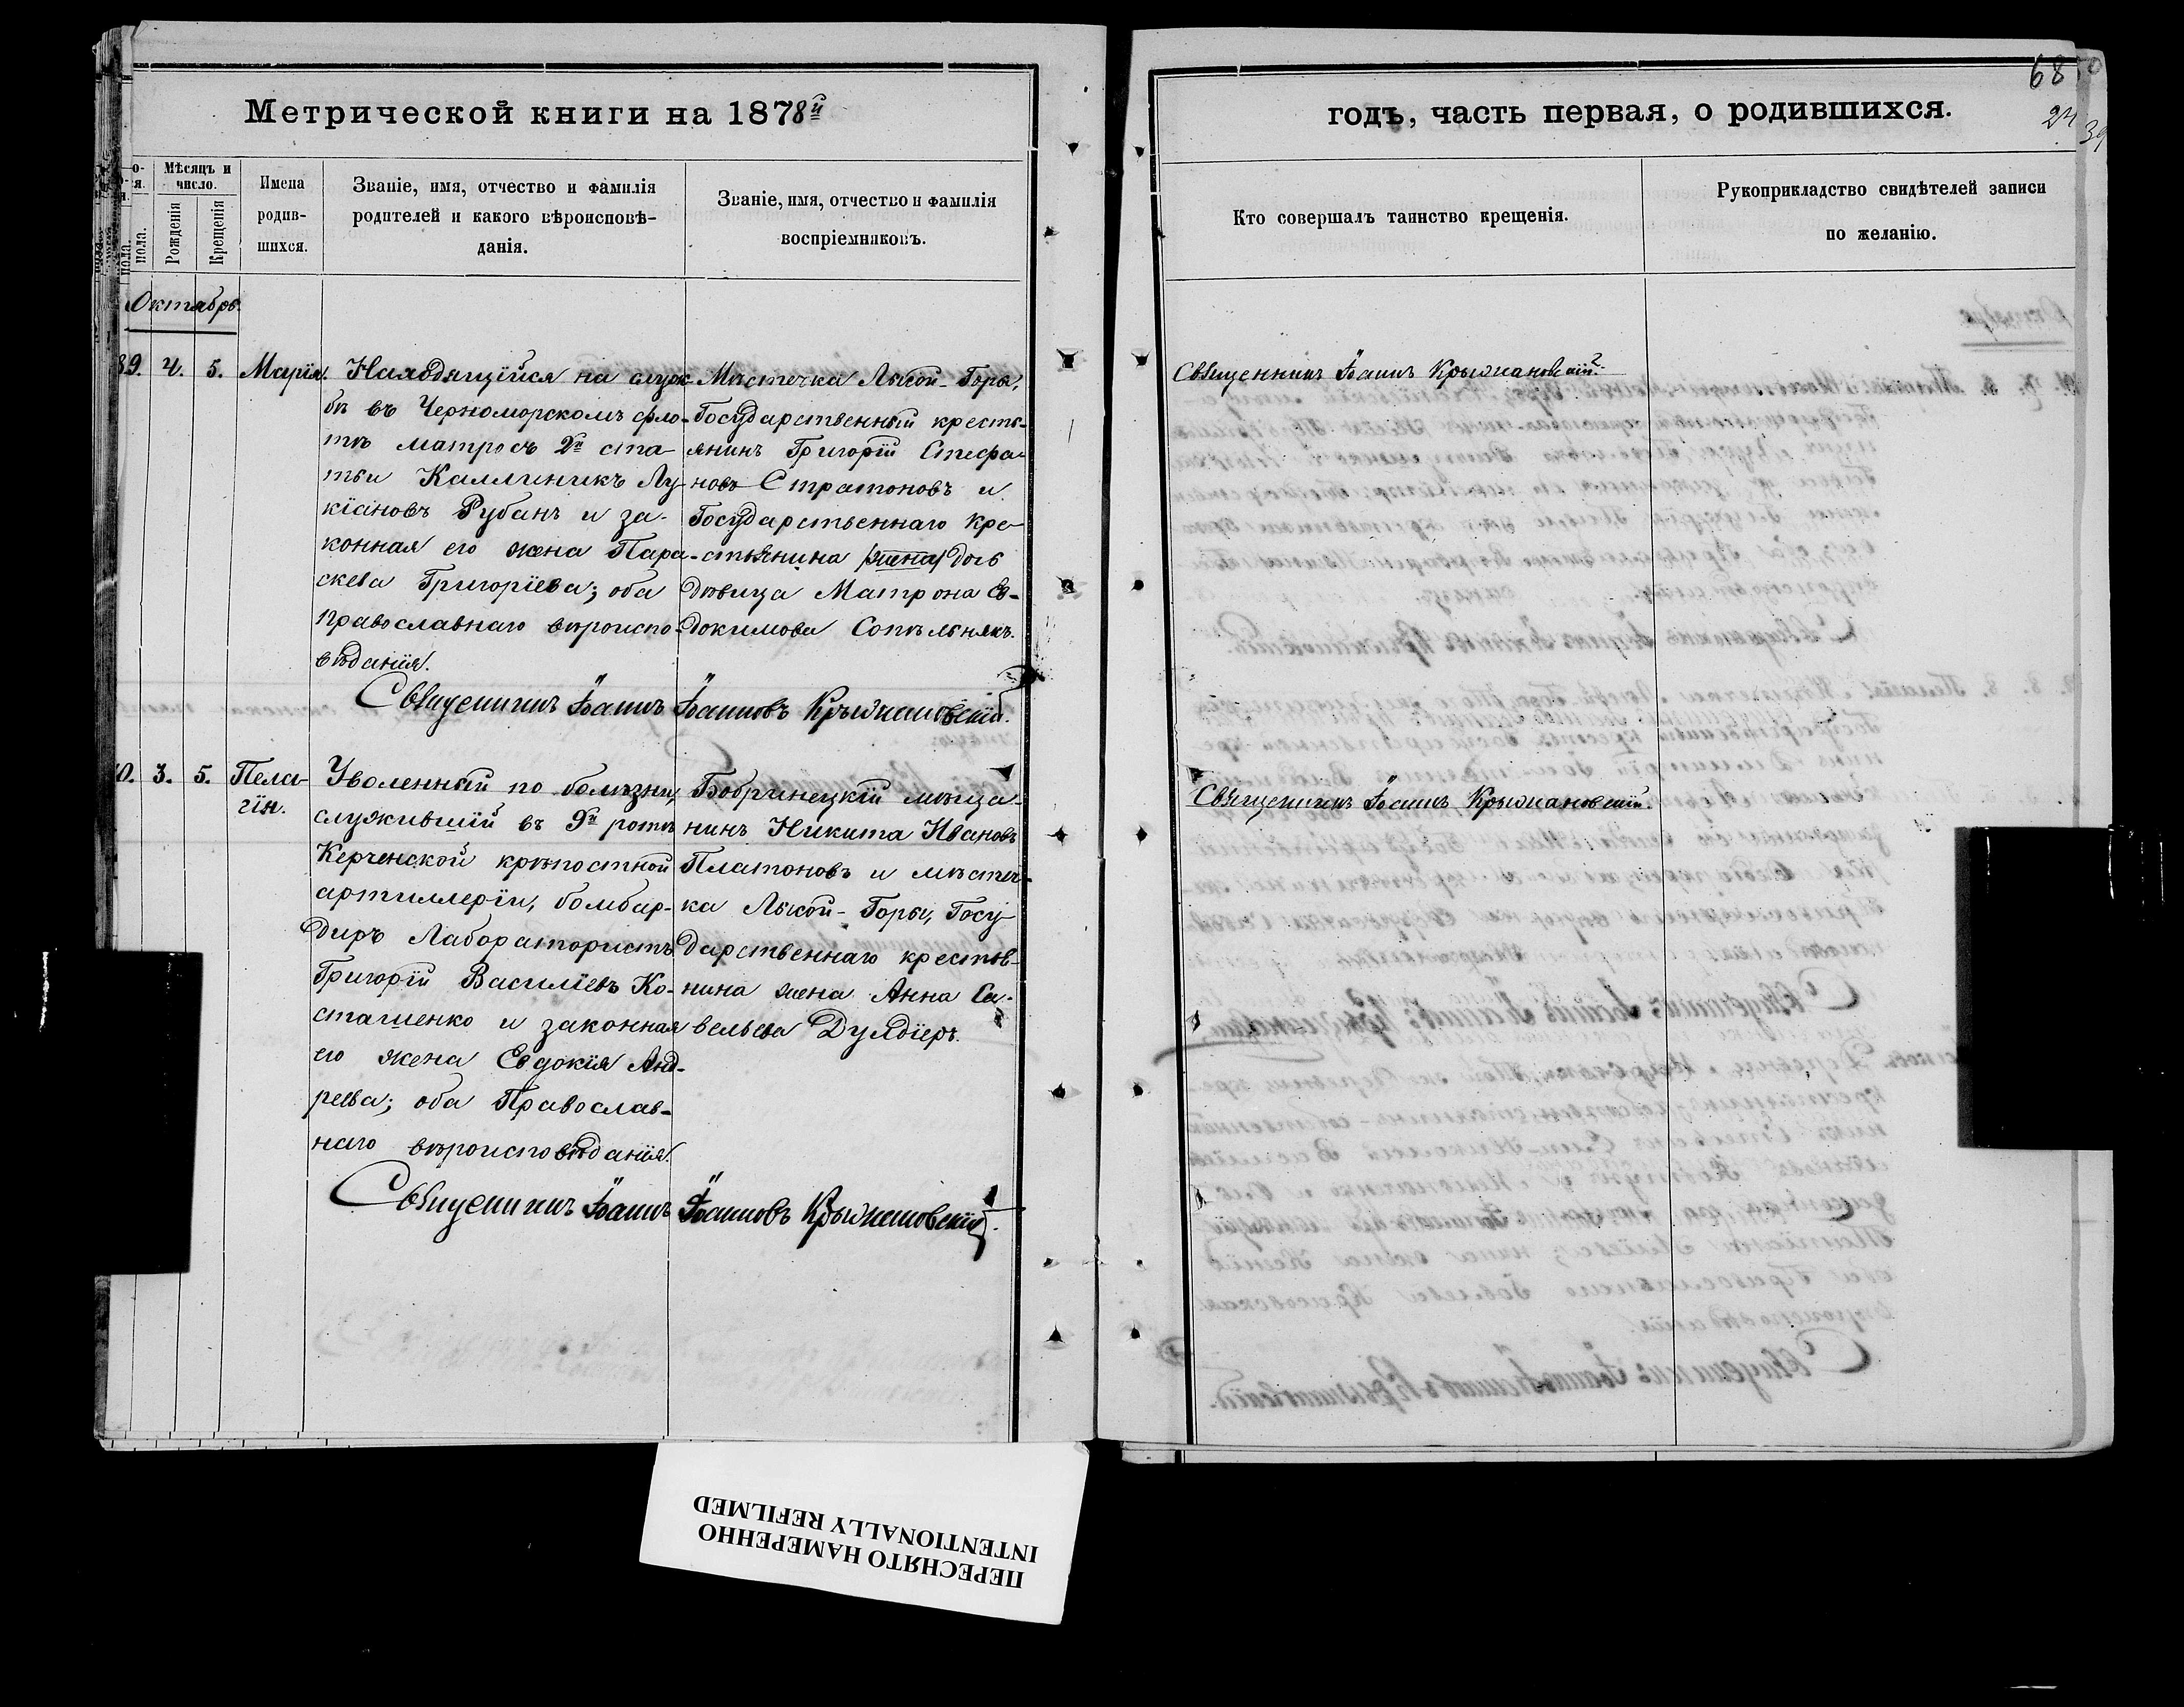 Метрической книги на 1878й
годъ, часть первая, о родившихся.
68
24
39
Мѣсяцъ и число.
Рожденія
Крещенія
пола.
Имена
родив-
шихся.
Званіе, имя, отчество и фамилія
родителей и какого вѣроисповѣ-
данія.
Званіе, имя, отчество и фамилія
воспріемниковъ.
Кто совершалъ таинство крещенія.
Рукоприкладство свидѣтелей записи
по желанію.
Октябрь.
39. 4. 5. Марія.
Находящійся на служ-
бѣ въ Черноморскомъ фло-
тѣ матросъ 2й ста-
тьи Каллиникъ Лу-
кіановъ Рубанъ и за-
конная его жена Пара-
скева Григоріева; оба
Православнаго вѣроиспо-
вѣданія.
Мѣстечка Лысой-Горы,
Государственный кресть-
янинъ Григорій Стефа-
новъ Стратоновъ и
Государственнаго кре-
стьянина /жена/ дочь
дѣвица Матрона Ев-
докимова Сопѣльнякъ.
Священникъ Іоаннъ Іоанновъ Крыжановскій.
Священникъ Іоаннъ Крыжановскій.
0. 3. 5. Пела-
гія.
Уволенный по болѣзни,
служившій въ 9й ротѣ
Керченской крѣпостной
артиллеріи, бомбар-
диръ Лаборатористъ
Григорій Василіевъ Ко-
сташенко и законная
его жена Евдокія Анд-
реева; оба Православ-
наго вѣроисповѣданія.
Бобринецкій мѣща-
нинъ Никита Ивановъ
Платоновъ и мѣстеч-
ка Лысой-Горы, Госу-
дарственнаго крестья-
нина жена Анна Са-
вельева Дулдіеръ.
Священникъ Іоаннъ Іоанновъ Крыжановскій.
Священникъ Іоаннъ Крыжановскій.
ПЕРЕСНЯТО НАМЕРЕННО
INTENTIONALLY REFILMED